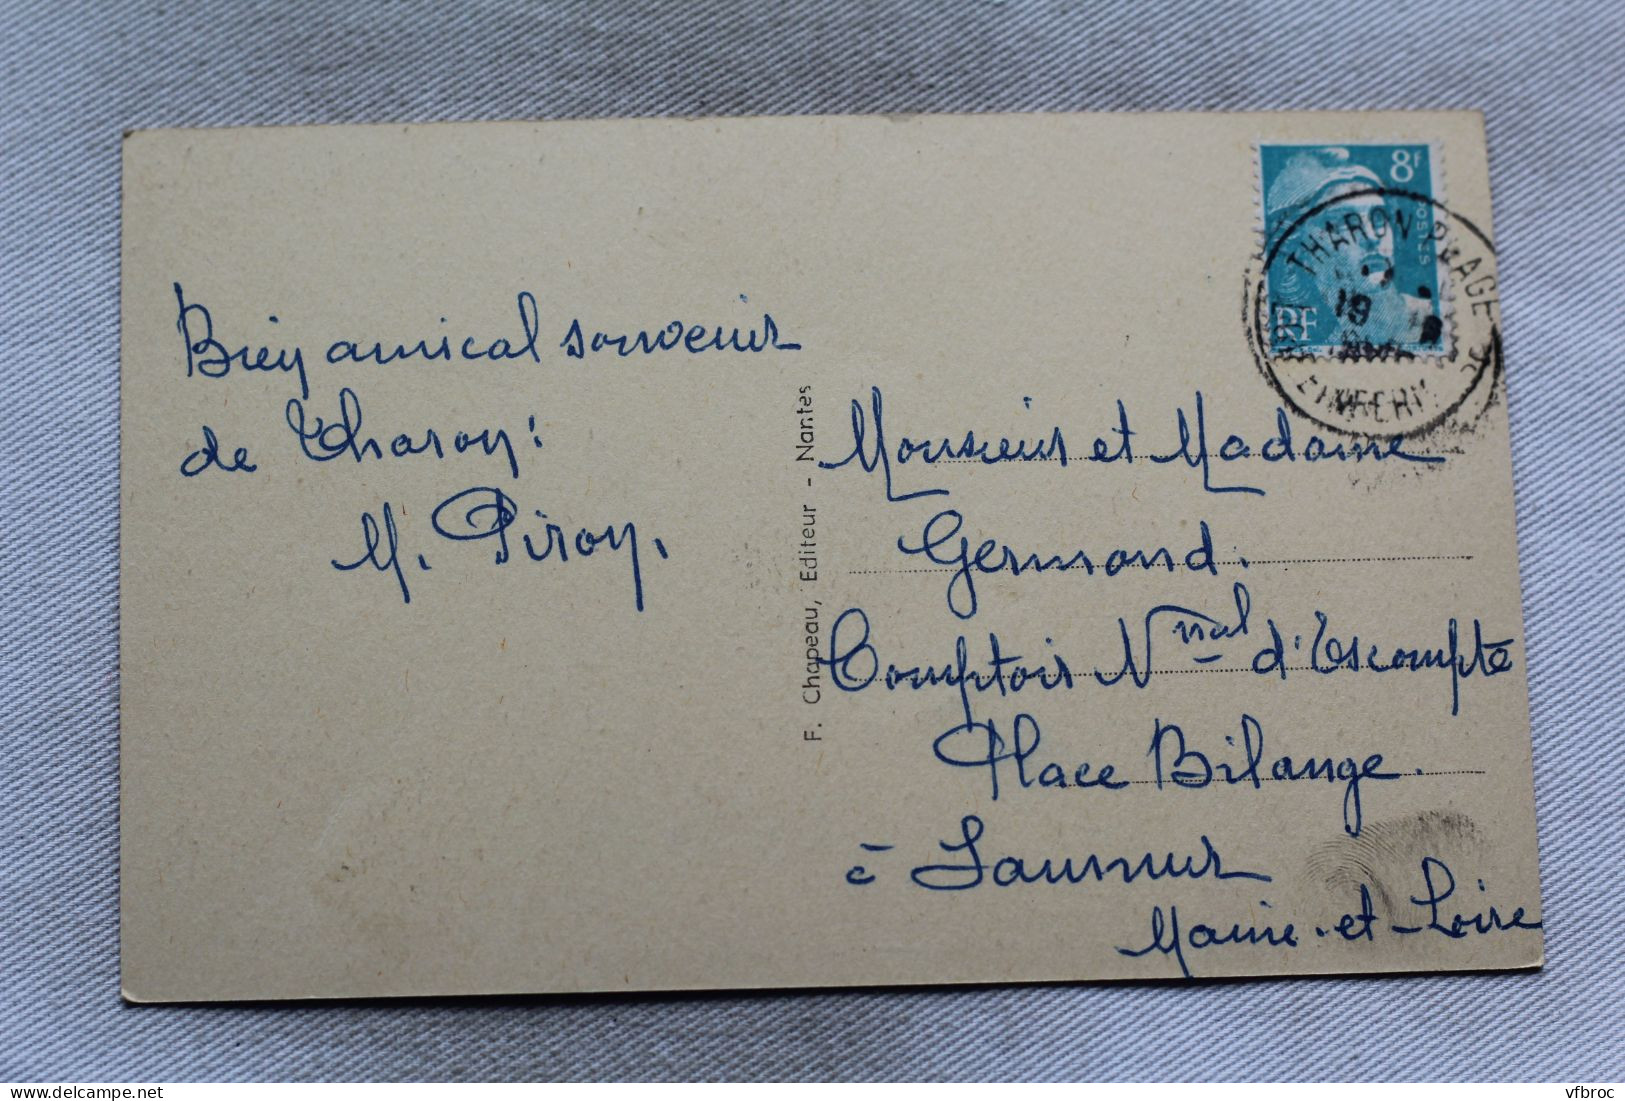 Bien amical souvenir
de Tharon !
M. Piron.
F. Chapeau, Editeur - Nantes
8F
POSTES
RF
THARON PLAGE
19
LOIRE INFERIEURE
Monsieur et Madame
Germond.
Comptoir Nnal d'Escompte
Place Bilange.
à Saumur
Maine-et-Loire
vfbroc